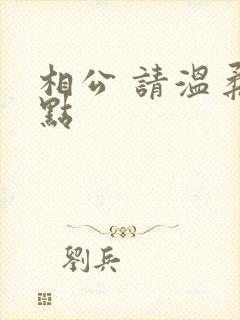 相公 請溫柔
點
劉兵